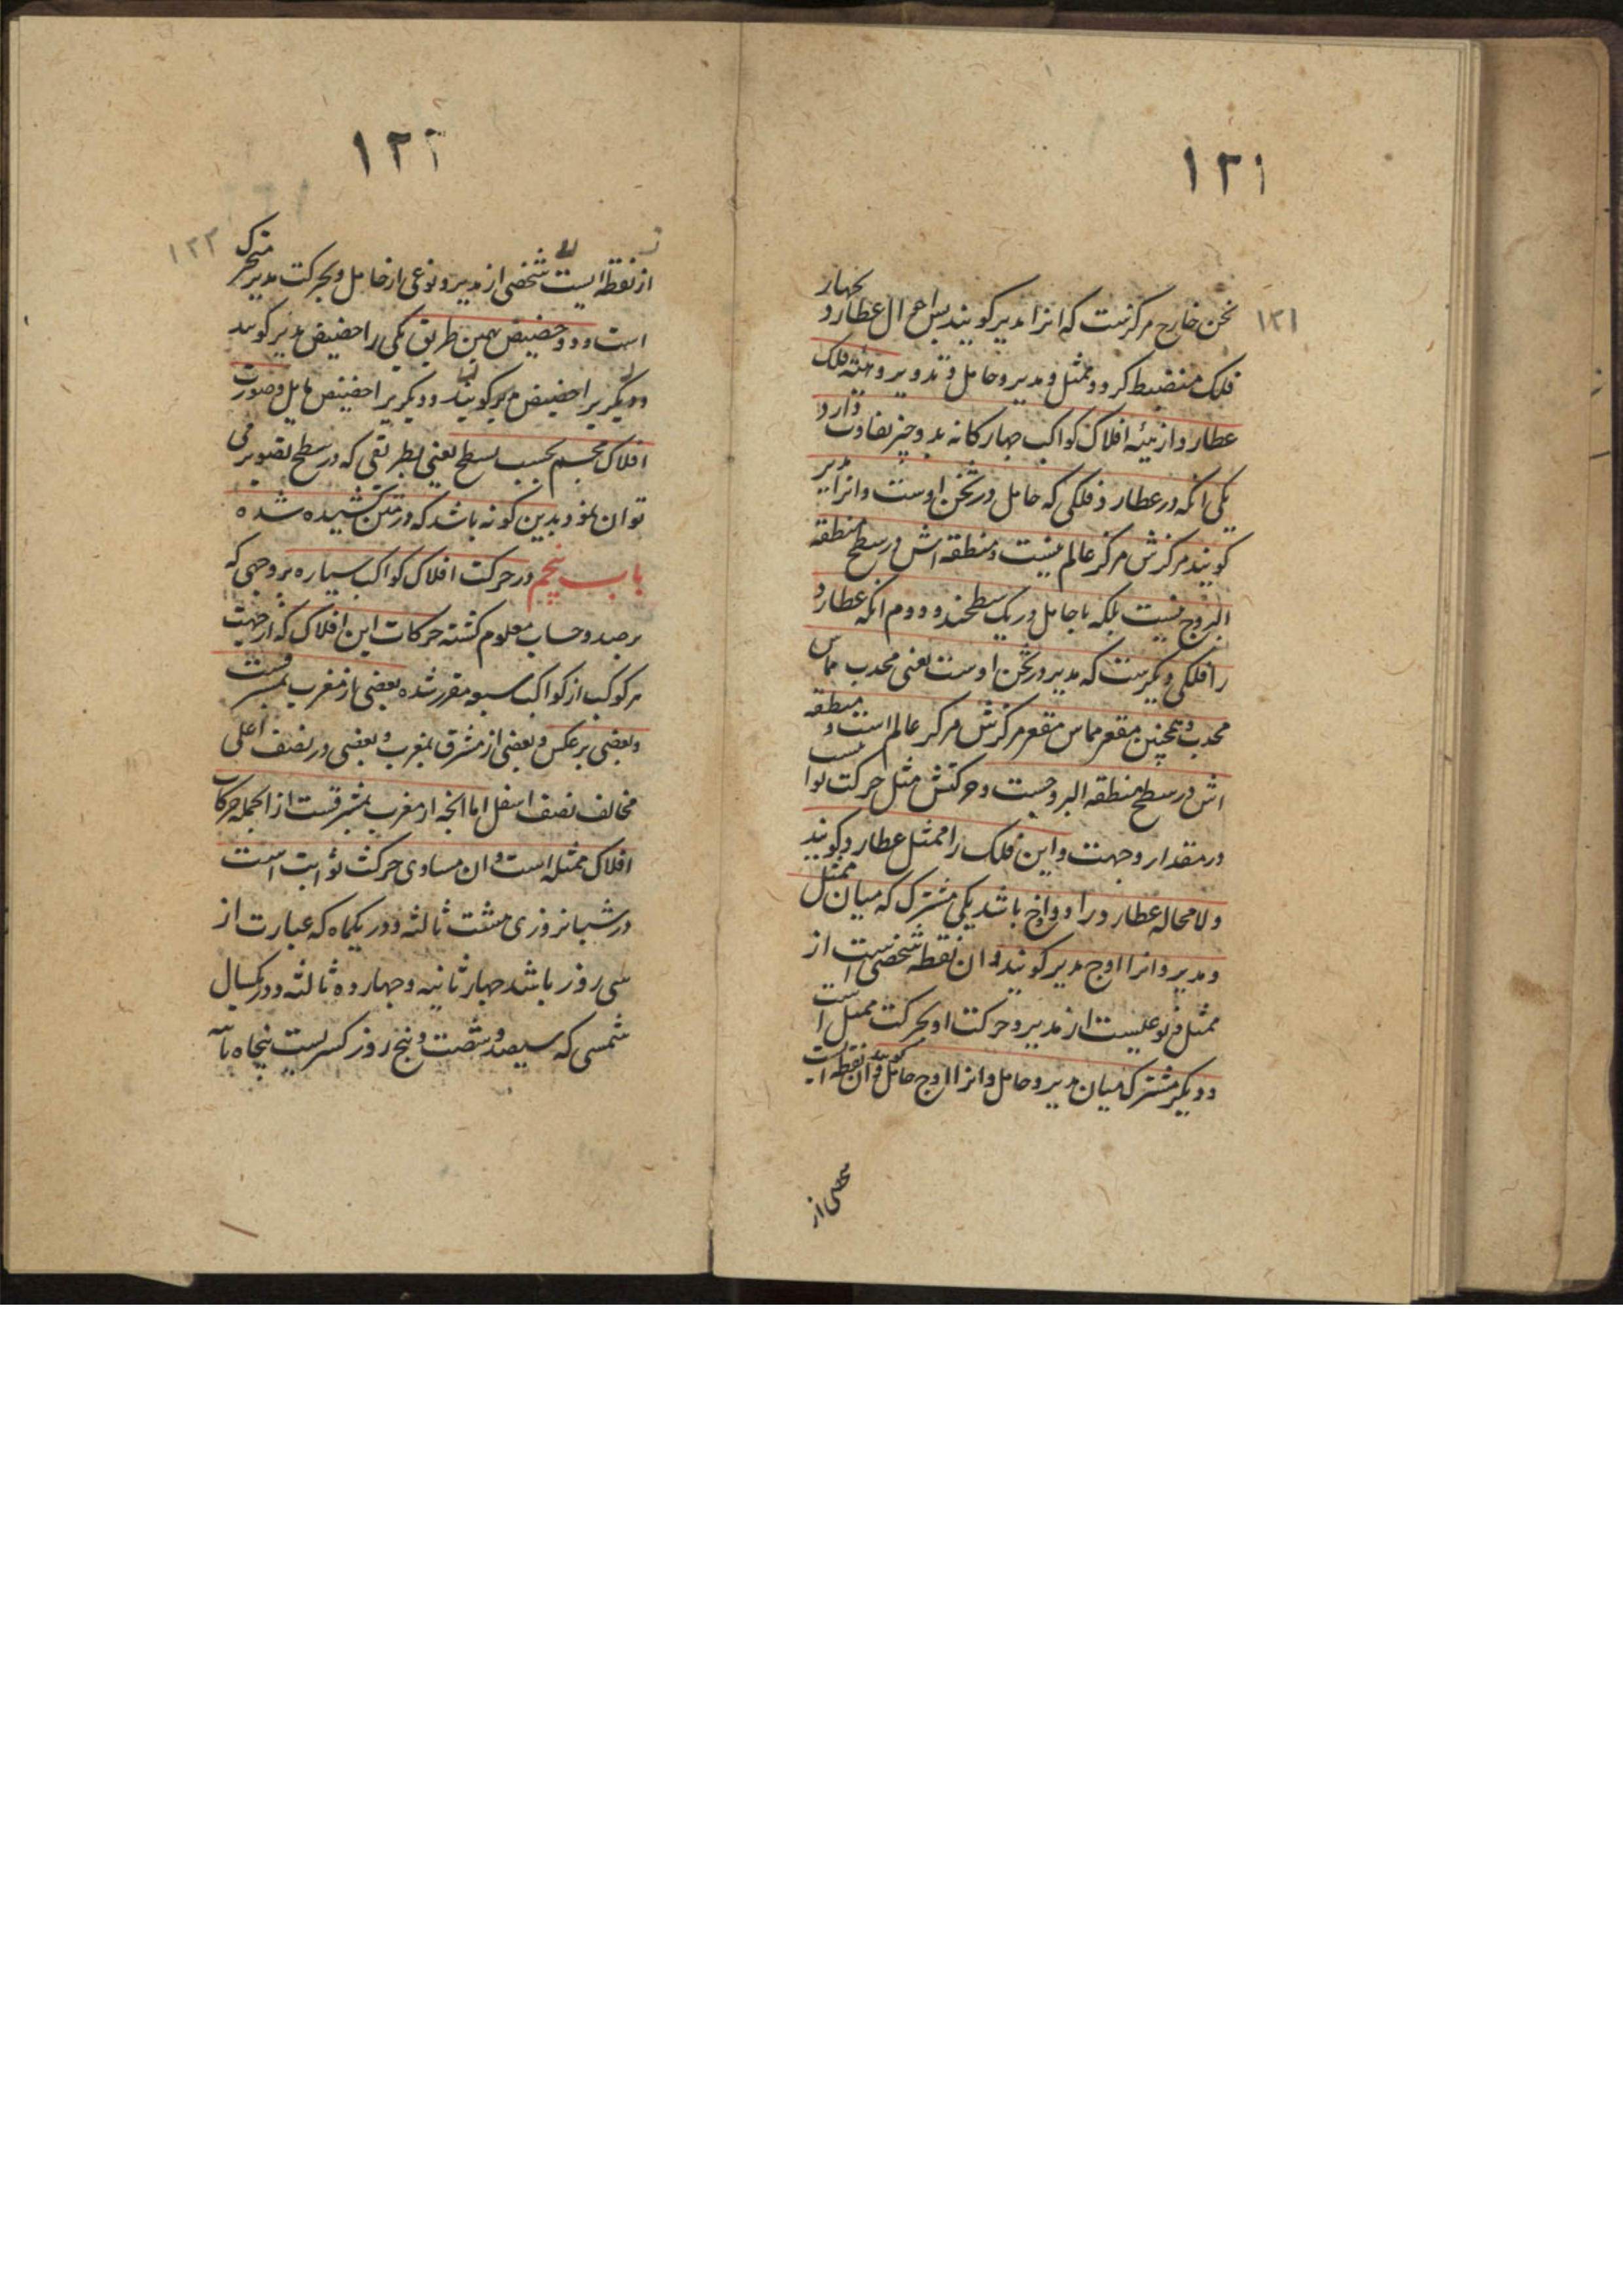 ١٢١
١٢١
ثخن خارج مرکزیست که انرا مدیر کویند پس احوال عطارد بچهار
فلک منضبط کردد ممثل و مدیر و حامل و تدویر و هیئه فلک
عطارد از هیئه افلاک کواکب چهارکانه بدو چیز تفاوت دارد
یکی انکه در عطارد فلکی که حامل در ثخن اوست و انرا مدیر
کویند مرکزش مرکز عالم نیست و منطقه اش در سطح منطقه
البروج نیست بلکه با حامل در یک سطحند و دوم انکه عطارد
را فلکی دیکرست که مدیر در ثخن اوست یعنی محدب مماس
محدب و همچنین مقعر مماس مقعر مرکزش مرکز عالم است و منطقه
اش در سطح منطقه البروجست و حرکتش مثل حرکت ثوابت
در مقدار و جهت و این فلک را ممثل عطارد کویند
و لا محاله عطارد را دو اوج باشد یکی مشترک که میان ممثل
و مدیر و انرا اوج مدیر کویند و ان نقطه شخصی است از
ممثل و نوعیست از مدیر و حرکت او بحرکت ممثل است
و دیکر مشترک میان مدیر و حامل و انرا اوج حامل کویند و ان نقطه است
شخصی از
١٢٢
١٢٢
از نقطه ایست شخصی از مدیر و نوعی از حامل و بحرکت مدیر متحرک
است و دو حضیض بهمین طریق یکی را حضیض مدیر کویند
و دیکریرا حضیض مدیر کویند و دیکریرا حضیض مایل و صورت
افلاک مجسم بحسب سطح یعنی بطریقی که در سطح تصویر می
توان نمود بدین کونه باشد که در متن کشیده شده
باب پنجم در حرکت افلاک کواکب سیاره بر وجهی که
برصد و حساب معلوم کشته حرکات این افلاک که از جهت
هر کوکب از کواکب سبعه مقرر شده بعضی از مغرب بمشرقست
و بعضی بر عکس و بعضی از مشرق بمغرب و بعضی در نصف اعلی
مخالف نصف اسفل اما انچه از مغرب بمشرقست از انجمله حرکات
افلاک ممثله است و ان مساوی حرکت ثوابت است
در شبانروزی هشت ثالثه و در یکماه که عبارت از
سی روز باشد چهار ثانیه و چهار ده ثالثه و در یکسال
شمسی که سیصد و شصت و پنج روز کسریست پنجاه ثانیه